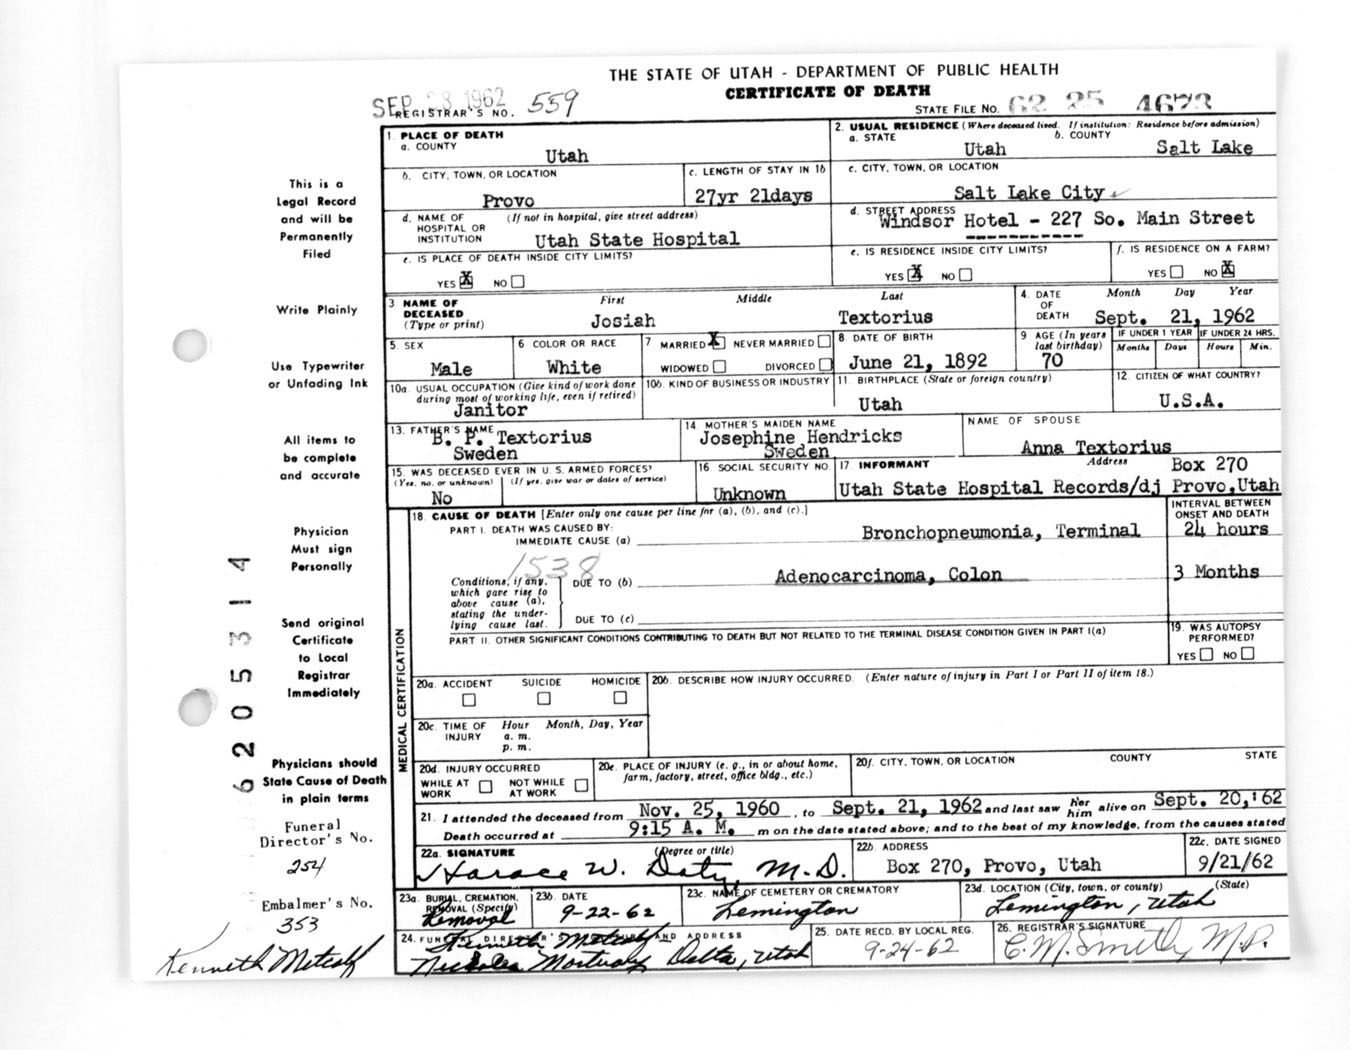 THE STATE OF UTAH - DEPARTMENT OF PUBLIC HEALTH
CERTIFICATE OF DEATH
SEP 28 1962
REGISTRAR'S NO. 559
STATE FILE NO. 62 25 4673
1. PLACE OF DEATH
a. COUNTY
Utah
2. USUAL RESIDENCE (Where deceased lived. If institution: Residence before admission)
a. STATE
Utah
b. COUNTY
Salt Lake
b. CITY, TOWN, OR LOCATION
Provo
c. LENGTH OF STAY IN 1b
27yr 21days
c. CITY, TOWN, OR LOCATION
Salt Lake City
d. NAME OF HOSPITAL OR INSTITUTION (If not in hospital, give street address)
Utah State Hospital
d. STREET ADDRESS
Windsor Hotel - 227 So. Main Street
e. IS PLACE OF DEATH INSIDE CITY LIMITS?
YES X NO
e. IS RESIDENCE INSIDE CITY LIMITS?
YES X NO
f. IS RESIDENCE ON A FARM?
YES NO X
3 NAME OF DECEASED (Type or print)
First Middle Last
Josiah Textorius
4. DATE OF DEATH
Month Day Year
Sept. 21, 1962
5. SEX
Male
6 COLOR OR RACE
White
7 MARRIED X NEVER MARRIED
WIDOWED DIVORCED
8 DATE OF BIRTH
June 21, 1892
9 AGE (In years last birthday)
70
IF UNDER 1 YEAR
Months Days
IF UNDER 24 HRS.
Hours Min.
10a. USUAL OCCUPATION (Give kind of work done during most of working life, even if retired)
Janitor
10b. KIND OF BUSINESS OR INDUSTRY
11. BIRTHPLACE (State or foreign country)
Utah
12. CITIZEN OF WHAT COUNTRY?
U.S.A.
13. FATHER'S NAME
B. P. Textorius
Sweden
14. MOTHER'S MAIDEN NAME
Josephine Hendricks
Sweden
NAME OF SPOUSE
Anna Textorius
15. WAS DECEASED EVER IN U. S. ARMED FORCES?
(Yes, no, or unknown) (If yes, give war or dates of service)
No
16. SOCIAL SECURITY NO.
Unknown
17. INFORMANT Address
Box 270
Utah State Hospital Records/dj Provo, Utah
MEDICAL CERTIFICATION
18. CAUSE OF DEATH [Enter only one cause per line for (a), (b), and (c).]
INTERVAL BETWEEN ONSET AND DEATH
PART I. DEATH WAS CAUSED BY:
IMMEDIATE CAUSE (a) Bronchopneumonia, Terminal
24 hours
1538
Conditions, if any, which gave rise to above cause (a), stating the underlying cause last.
DUE TO (b) Adenocarcinoma, Colon
3 Months
DUE TO (c)
PART II. OTHER SIGNIFICANT CONDITIONS CONTRIBUTING TO DEATH BUT NOT RELATED TO THE TERMINAL DISEASE CONDITION GIVEN IN PART I(a)
19. WAS AUTOPSY PERFORMED?
YES NO
20a. ACCIDENT SUICIDE HOMICIDE
20b. DESCRIBE HOW INJURY OCCURRED. (Enter nature of injury in Part I or Part II of item 18.)
20c. TIME OF INJURY
Hour Month, Day, Year
a. m.
p. m.
20d. INJURY OCCURRED
WHILE AT WORK NOT WHILE AT WORK
20e. PLACE OF INJURY (e. g., in or about home, farm, factory, street, office bldg., etc.)
20f. CITY, TOWN, OR LOCATION COUNTY STATE
21. I attended the deceased from Nov. 25, 1960, to Sept. 21, 1962 and last saw her him alive on Sept. 20,'62
Death occurred at 9:15 A. M. m on the date stated above; and to the best of my knowledge, from the causes stated
22a. SIGNATURE (Degree or title)
Horace W. Doty, M.D.
22b. ADDRESS
Box 270, Provo, Utah
22c. DATE SIGNED
9/21/62
23a. BURIAL, CREMATION, REMOVAL (Specify)
Removal
23b. DATE
9-22-62
23c. NAME OF CEMETERY OR CREMATORY
Lemington
23d. LOCATION (City, town, or county) (State)
Lemington, Utah
24. FUNERAL DIRECTOR'S SIGNATURE AND ADDRESS
Kenneth Metcalf
Nickoles Mortuary Delta, Utah
25. DATE RECD. BY LOCAL REG.
9-24-62
26. REGISTRAR'S SIGNATURE
C. M. Smith, M.D.
This is a
Legal Record
and will be
Permanently
Filed
Write Plainly
Use Typewriter
or Unfading Ink
All items to
be complete
and accurate
Physician
Must sign
Personally
Send original
Certificate
to Local
Registrar
Immediately
Physicians should
State Cause of Death
in plain terms
Funeral
Director's No.
254
Embalmer's No.
353
Kenneth Metcalf
6205314